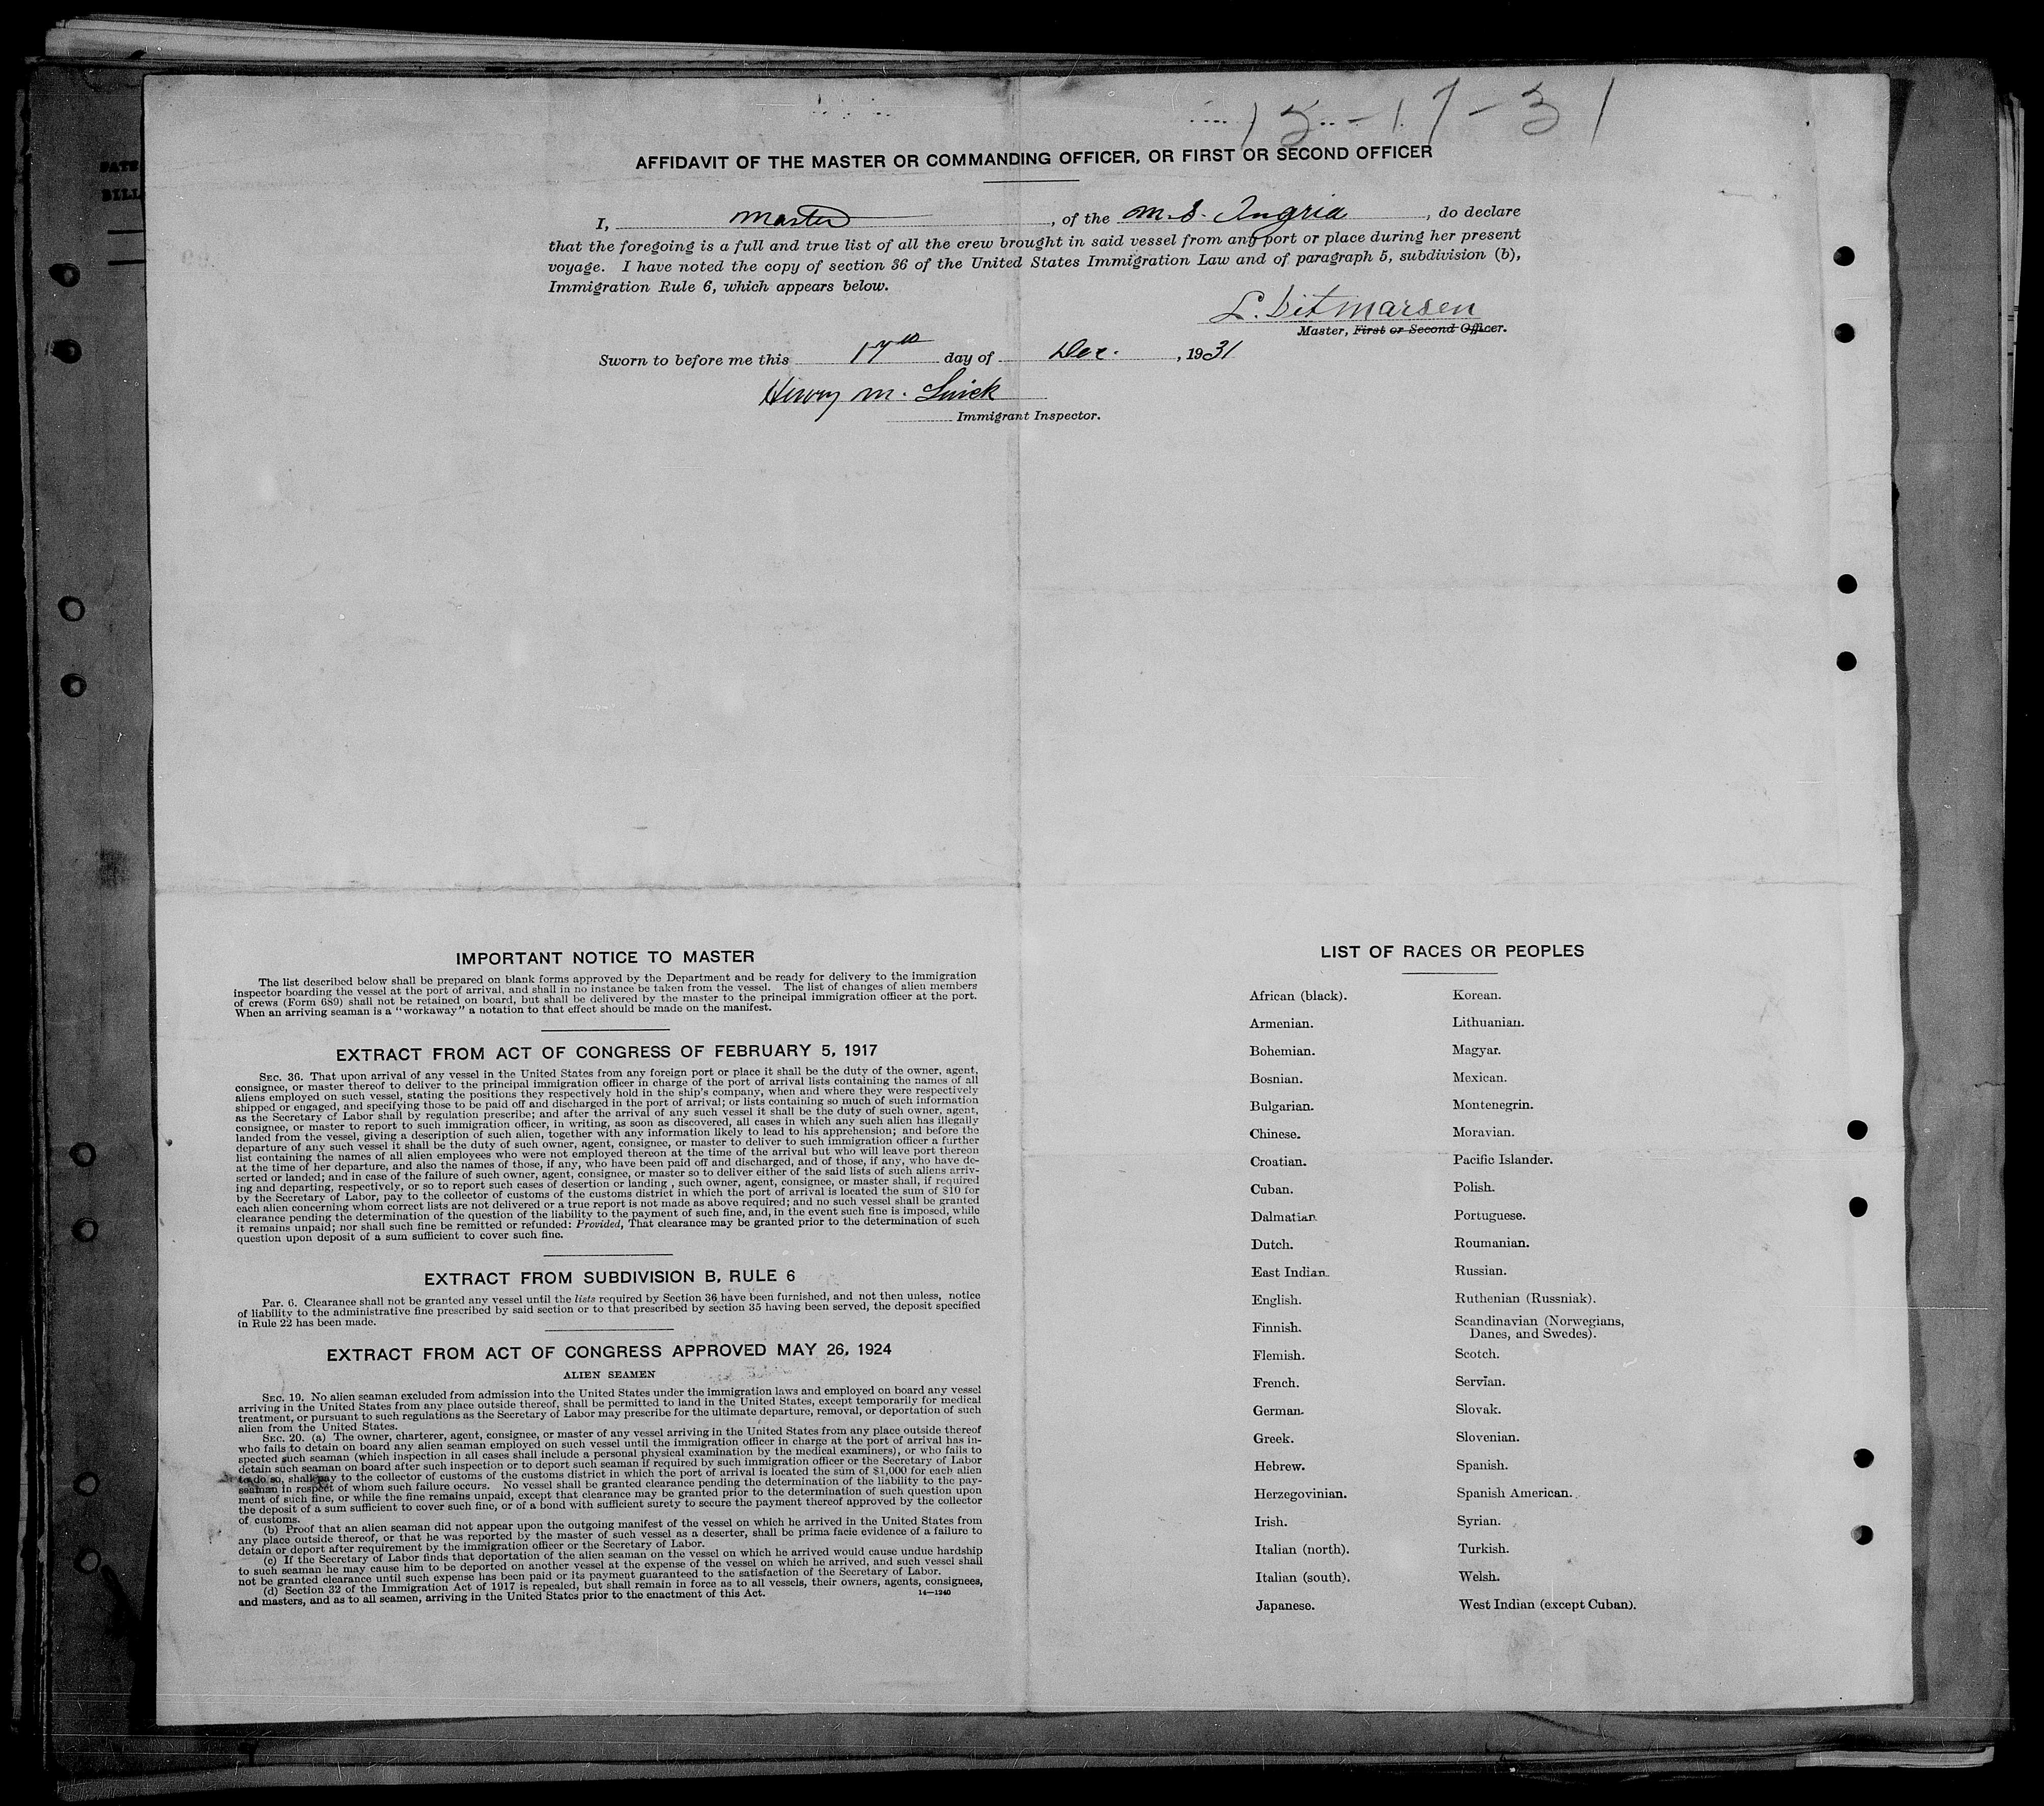 PATE
BILL
15-17-31
AFFIDAVIT OF THE MASTER OR COMMANDING OFFICER, OR FIRST OR SECOND OFFICER
I, Master, of the M.S. Ingria, do declare
that the foregoing is a full and true list of all the crew brought in said vessel from any port or place during her present
voyage. I have noted the copy of section 36 of the United States Immigration Law and of paragraph 5, subdivision (b),
Immigration Rule 6, which appears below.
L. Ditmarsen
Master, First or Second Officer.
Sworn to before me this 17th day of Dec., 1931
Henry M.
Immigrant Inspector.
IMPORTANT NOTICE TO MASTER
The list described below shall be prepared on blank forms approved by the Department and be ready for delivery to the immigration
inspector boarding the vessel at the port of arrival, and shall in no instance be taken from the vessel. The list of changes of alien members
of crews (Form 689) shall not be retained on board, but shall be delivered by the master to the principal immigration officer at the port.
When an arriving seaman is a "workaway" a notation to that effect should be made on the manifest.
EXTRACT FROM ACT OF CONGRESS OF FEBRUARY 5, 1917
SEC. 36. That upon arrival of any vessel in the United States from any foreign port or place it shall be the duty of the owner, agent,
consignee, or master thereof to deliver to the principal immigration officer in charge of the port of arrival lists containing the names of all
aliens employed on such vessel, stating the positions they respectively hold in the ship's company, when and where they were respectively
shipped or engaged, and specifying those to be paid off and discharged in the port of arrival; or lists containing so much of such information
as the Secretary of Labor shall by regulation prescribe; and after the arrival of any such vessel it shall be the duty of such owner, agent,
consignee, or master to report to such immigration officer, in writing, as soon as discovered, all cases in which any such alien has illegally
landed from the vessel, giving a description of such alien, together with any information likely to lead to his apprehension; and before the
departure of any such vessel it shall be the duty of such owner, agent, consignee, or master to deliver to such immigration officer a further
list containing the names of all alien employees who were not employed thereon at the time of the arrival but who will leave port thereon
at the time of her departure, and also the names of those, if any, who have been paid off and discharged, and of those, if any, who have de-
serted or landed; and in case of the failure of such owner, agent, consignee, or master so to deliver either of the said lists of such aliens arriv-
ing and departing, respectively, or so to report such cases of desertion or landing, such owner, agent, consignee, or master shall, if required
by the Secretary of Labor, pay to the collector of customs of the customs district in which the port of arrival is located the sum of $10 for
each alien concerning whom correct lists are not delivered or a true report is not made as above required; and no such vessel shall be granted
clearance pending the determination of the question of the liability to the payment of such fine, and, in the event such fine is imposed, while
it remains unpaid; nor shall such fine be remitted or refunded: Provided, That clearance may be granted prior to the determination of such
question upon deposit of a sum sufficient to cover such fine.
EXTRACT FROM SUBDIVISION B, RULE 6
Par. 6. Clearance shall not be granted any vessel until the lists required by Section 36 have been furnished, and not then unless, notice
of liability to the administrative fine prescribed by said section or to that prescribed by section 35 having been served, the deposit specified
in Rule 22 has been made.
EXTRACT FROM ACT OF CONGRESS APPROVED MAY 26, 1924
ALIEN SEAMEN
SEC. 19. No alien seaman excluded from admission into the United States under the immigration laws and employed on board any vessel
arriving in the United States from any place outside thereof, shall be permitted to land in the United States, except temporarily for medical
treatment, or pursuant to such regulations as the Secretary of Labor may prescribe for the ultimate departure, removal, or deportation of such
alien from the United States.
SEC. 20. (a) The owner, charterer, agent, consignee, or master of any vessel arriving in the United States from any place outside thereof
who fails to detain on board any alien seaman employed on such vessel until the immigration officer in charge at the port of arrival has in-
spected such seaman (which inspection in all cases shall include a personal physical examination by the medical examiners), or who fails to
detain such seaman on board after such inspection or to deport such seaman if required by such immigration officer or the Secretary of Labor
to do so, shall pay to the collector of customs of the customs district in which the port of arrival is located the sum of $1,000 for each alien
seaman in respect of whom such failure occurs. No vessel shall be granted clearance pending the determination of the liability to the pay-
ment of such fine, or while the fine remains unpaid, except that clearance may be granted prior to the determination of such question upon
the deposit of a sum sufficient to cover such fine, or of a bond with sufficient surety to secure the payment thereof approved by the collector
of customs.
(b) Proof that an alien seaman did not appear upon the outgoing manifest of the vessel on which he arrived in the United States from
any place outside thereof, or that he was reported by the master of such vessel as a deserter, shall be prima facie evidence of a failure to
detain or deport after requirement by the immigration officer or the Secretary of Labor.
(c) If the Secretary of Labor finds that deportation of the alien seaman on the vessel on which he arrived would cause undue hardship
to such seaman he may cause him to be deported on another vessel at the expense of the vessel on which he arrived, and such vessel shall
not be granted clearance until such expense has been paid or its payment guaranteed to the satisfaction of the Secretary of Labor.
(d) Section 32 of the Immigration Act of 1917 is repealed, but shall remain in force as to all vessels, their owners, agents, consignees,
and masters, and as to all seamen, arriving in the United States prior to the enactment of this Act.
14—1240
LIST OF RACES OR PEOPLES
African (black).
Armenian.
Bohemian.
Bosnian.
Bulgarian.
Chinese.
Croatian.
Cuban.
Dalmatian.
Dutch.
East Indian.
English.
Finnish.
Flemish.
French.
German.
Greek.
Hebrew.
Herzegovinian.
Irish.
Italian (north).
Italian (south).
Japanese.
Korean.
Lithuanian.
Magyar.
Mexican.
Montenegrin.
Moravian.
Pacific Islander.
Polish.
Portuguese.
Roumanian.
Russian.
Ruthenian (Russniak).
Scandinavian (Norwegians,
Danes, and Swedes).
Scotch.
Servian.
Slovak.
Slovenian.
Spanish.
Spanish American.
Syrian.
Turkish.
Welsh.
West Indian (except Cuban).